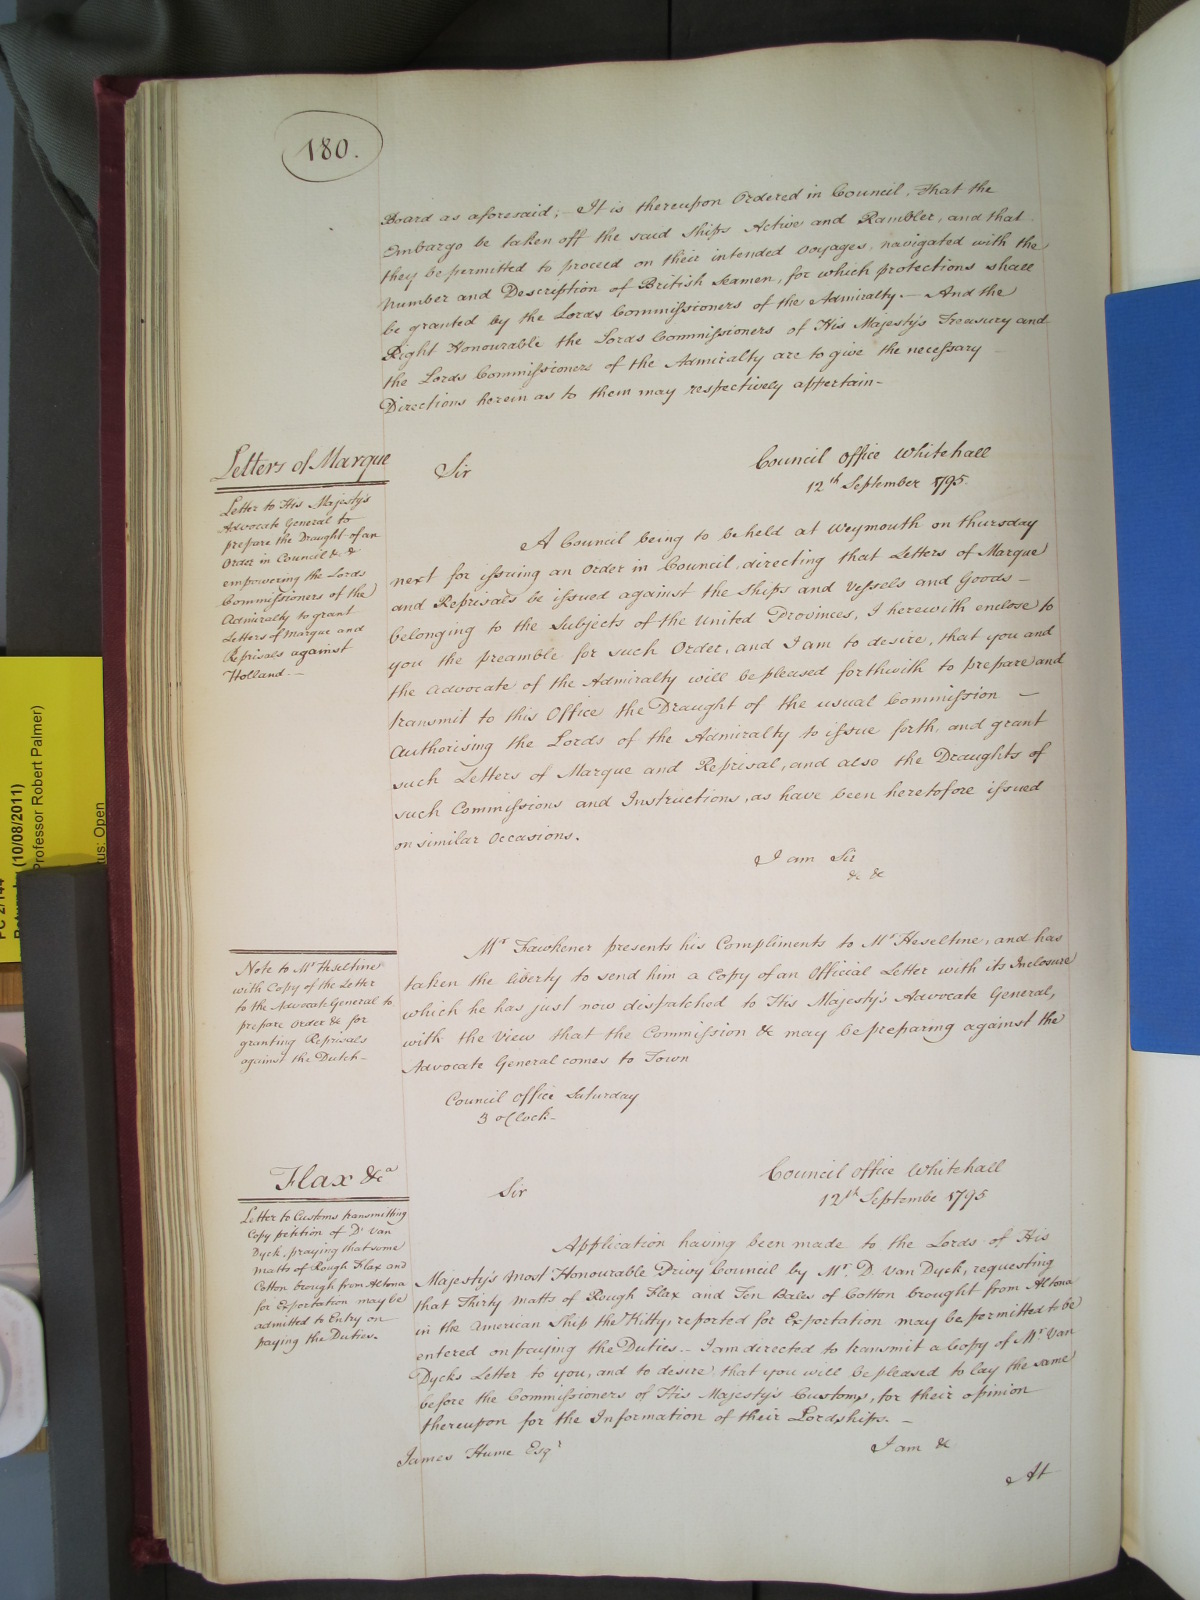 180.
Board as aforesaid; – It is thereupon Ordered in Council, That the
Embargo be taken off the said Ships Active and Rambler, and that
they be permitted to proceed on their intended Voyages, navigated with the
Number and Description of British Seamen, for which protections shall
be granted by the Lords Commissioners of the Admiralty. – And the
Right Honourable the Lords Commissioners of His Majesty's Treasury and
the Lords Commissioners of the Admiralty are to give the necessary
Directions herein as to them may respectively appertain –
Letters of Marque
Letter to His Majesty's
Advocate General to
prepare the Draught of an
Order in Council &c &c
empowering the Lords
Commissioners of the
Admiralty to grant
Letters of Marque and
Reprisals against
Holland. –
Sir
Council Office Whitehall
12th September 1795.
A Council being to be held at Weymouth on Thursday
next for issuing an Order in Council, directing that Letters of Marque
and Reprisals be issued against the Ships and Vessels and Goods –
belonging to the Subjects of the United Provinces, I herewith enclose to
you the preamble for such Order, and I am to desire, that you and
the Advocate of the Admiralty will be pleased forthwith to prepare and
transmit to this Office the Draught of the usual Commission –
Authorising the Lords of the Admiralty to issue forth, and grant
such Letters of Marque and Reprisal, and also the Draughts of
such Commissions and Instructions, as have been heretofore issued
on similar Occasions.
I am Sir
&c &c
Note to Mr Heseltine
with Copy of the Letter
to the Advocate General to
prepare Order &c for
granting Reprisals
against the Dutch –
Mr Fawkener presents his Compliments to Mr Heseltine, and has
taken the liberty to send him a Copy of an Official Letter with its Inclosure
which he has just now dispatched to His Majesty's Advocate General,
with the View that the Commission &c may be preparing against the
Advocate General comes to Town
Council Office Saturday
3 o'Clock –
Flax &ca
Letter to Customs transmitting
Copy petition of D. Van
Dyck, praying that some
Matts of Rough Flax and
Cotton brough from Altona
for Exportation may be
admitted to Entry on
paying the Duties.
Sir
Council Office Whitehall
12th Septembe 1795
Application having been made to the Lords of His
Majesty's Most Honourable Privy Council by Mr. D. Van Dyck, requesting
that Thirty Matts of Rough Flax and Ten Bales of Cotton brought from Altona
in the American Ship the Kitty, reported for Exportation may be permitted to be
entered on paying the Duties. – I am directed to transmit a Copy of Mr. Van
Dycks Letter to you, and to desire, that you will be pleased to lay the same
before the Commissioners of His Majesty's Customs, for their opinion
thereupon for the Information of their Lordships. –
James Hume Esqr
I am &c
At
(10/08/2011)
Professor Robert Palmer)
Open